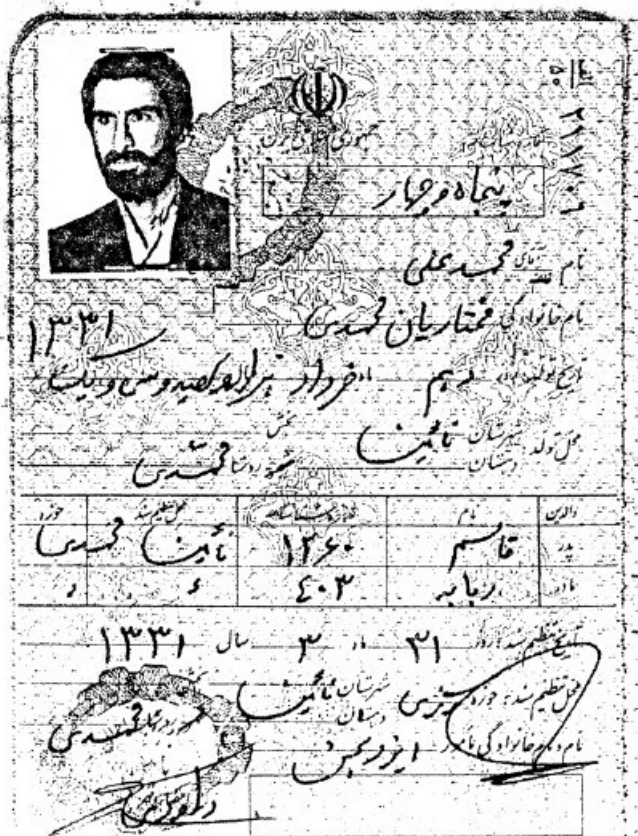 جمهوری اسلامی ایران
الف
۵۰
۲۱۱۷۰۹
پنجاه و چهار
نام آقای محمدعلی
نام خانوادگی مختاریان محمدی
۱۳۳۱
تاریخ تولد: روز دهم ماه خرداد هزار و سیصد و سی و یک
محل تولد: شهرستان نائین بخش
دهستان روستا محمدی
والدین نام شماره شناسنامه محل تنظیم سند حوزه
پدر قاسم ۱۳۶۰ نائین محمدی
مادر ربابه ۴۰۳ ء ء
تاریخ تنظیم سند: روز ۳۱ ماه ۳ سال ۱۳۳۱
محل تنظیم سند: حوزه شهرستان نائین
دهستان محمدی
نام و نام خانوادگی مامور